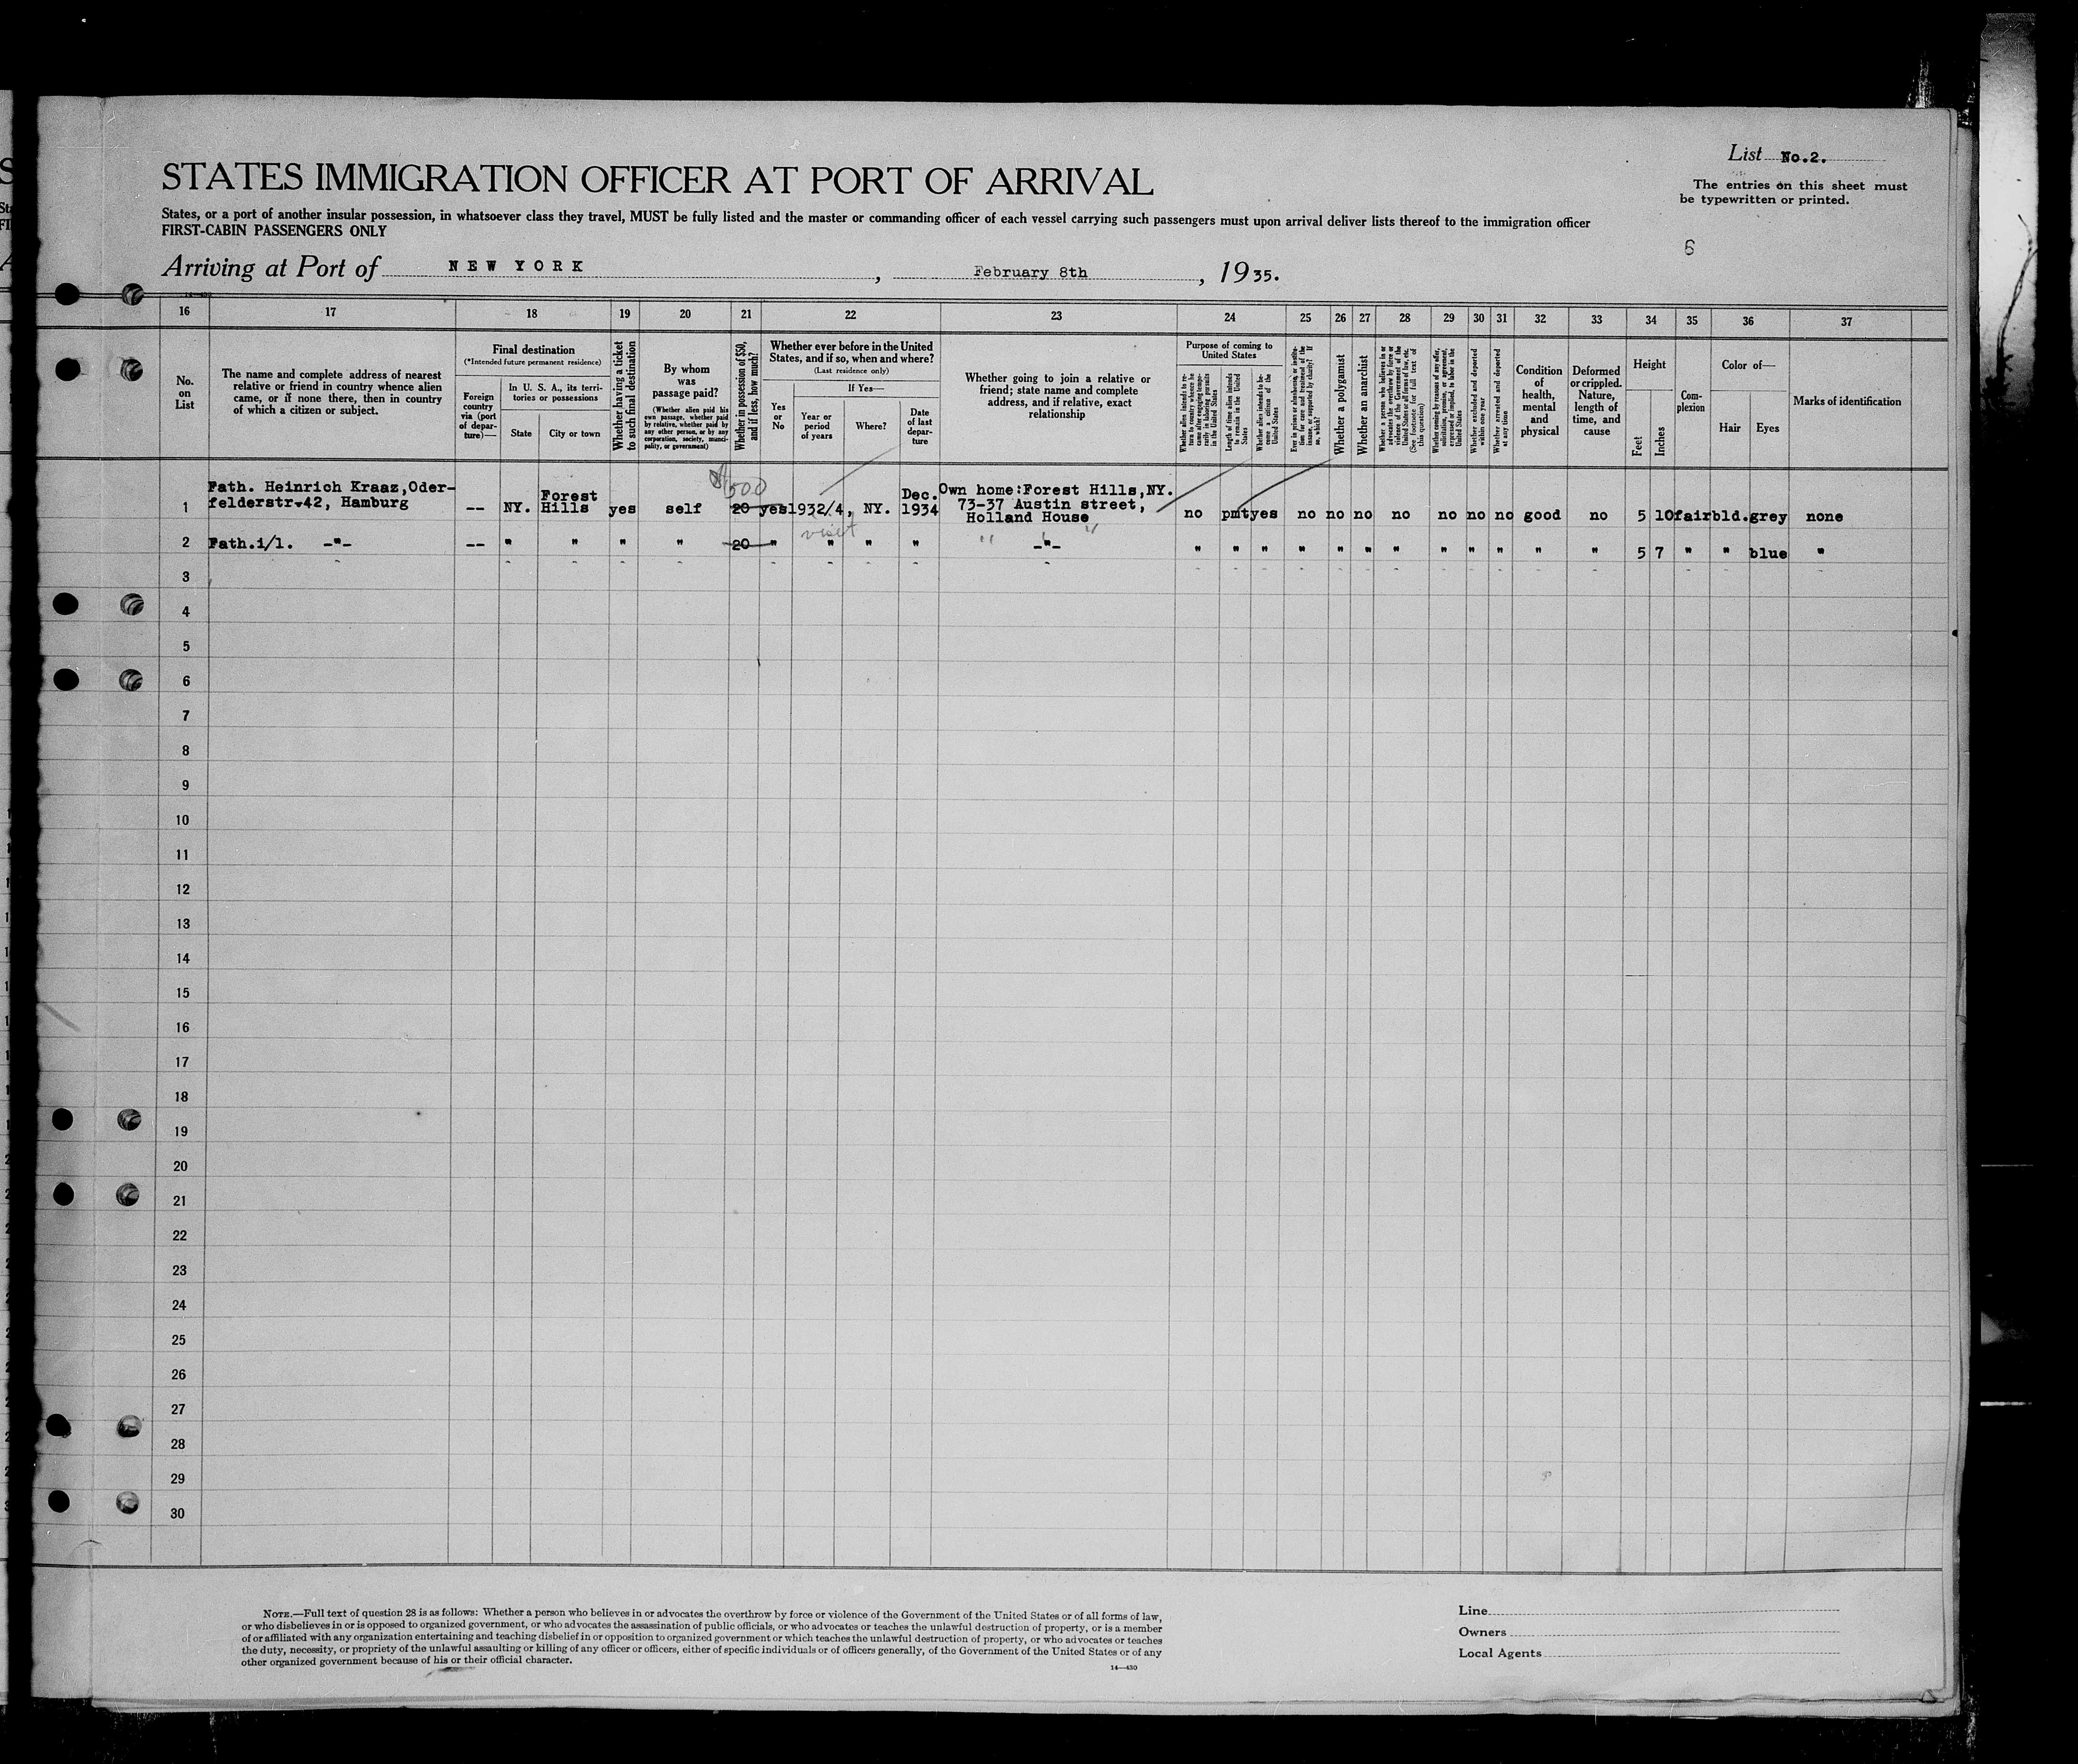 List No.2.
STATES IMMIGRATION OFFICER AT PORT OF ARRIVAL
The entries on this sheet must
be typewritten or printed.
States, or a port of another insular possession, in whatsoever class they travel, MUST be fully listed and the master or commanding officer of each vessel carrying such passengers must upon arrival deliver lists thereof to the immigration officer
FIRST-CABIN PASSENGERS ONLY
6
Arriving at Port of NEW YORK, February 8th, 1935.
16 17 18 19 20 21 22 23 24 25 26 27 28 29 30 31 32 33 34 35 36 37
No. on List
The name and complete address of nearest
relative or friend in country whence alien
came, or if none there, then in country
of which a citizen or subject.
Final destination
(*Intended future permanent residence)
Foreign
country
via (port
of depar-
ture)—
In U. S. A., its terri-
tories or possessions
State
City or town
Whether having a ticket
to such final destination
By whom
was
passage paid?
(Whether alien paid his
own passage, whether paid
by relative, whether paid by
any other person, or by any
corporation, society, munici-
pality, or government)
Whether in possession of $50,
and if less, how much?
Whether ever before in the United
States, and if so, when and where?
(Last residence only)
Yes
or
No
If Yes—
Year or
period
of years
Where?
Date
of last
depar-
ture
Whether going to join a relative or
friend; state name and complete
address, and if relative, exact
relationship
Purpose of coming to
United States
Length of time alien intends
to remain in the United
States
Whether alien intends to be-
come a citizen of the
United States
Whether a polygamist
Whether an anarchist
Whether excluded and deported
within one year
Whether arrested and deported
at any time
Condition
of
health,
mental
and
physical
Deformed
or crippled.
Nature,
length of
time, and
cause
Height
Feet
Inches
Com-
plexion
Color of—
Hair
Eyes
Marks of identification
1 Fath. Heinrich Kraaz,Oder-
felderstr.42, Hamburg
-- NY. Forest
Hills yes self $500 20 yes 1932/4, NY. Dec.
1934 Own home:Forest Hills,NY.
73-37 Austin street,
Holland House
no pmt yes no no no no no no no good no 5 10 fair bld. grey none
visit
2 Fath.i/l. -"- -- " " " " 20 " " " " -"- " " " " " " " " " " " " 5 7 " " blue "
3
4
5
6
7
8
9
10
11
12
13
14
15
16
17
18
19
20
21
22
23
24
25
26
27
28
29
30
NOTE.—Full text of question 28 is as follows: Whether a person who believes in or advocates the overthrow by force or violence of the Government of the United States or of all forms of law,
or who disbelieves in or is opposed to organized government, or who advocates the assassination of public officials, or who advocates or teaches the unlawful destruction of property, or is a member
of or affiliated with any organization entertaining and teaching disbelief in or opposition to organized government or which teaches the unlawful destruction of property, or who advocates or teaches
the duty, necessity, or propriety of the unlawful assaulting or killing of any officer or officers, either of specific individuals or of officers generally, of the Government of the United States or of any
other organized government because of his or their official character.
14—430
Line
Owners
Local Agents